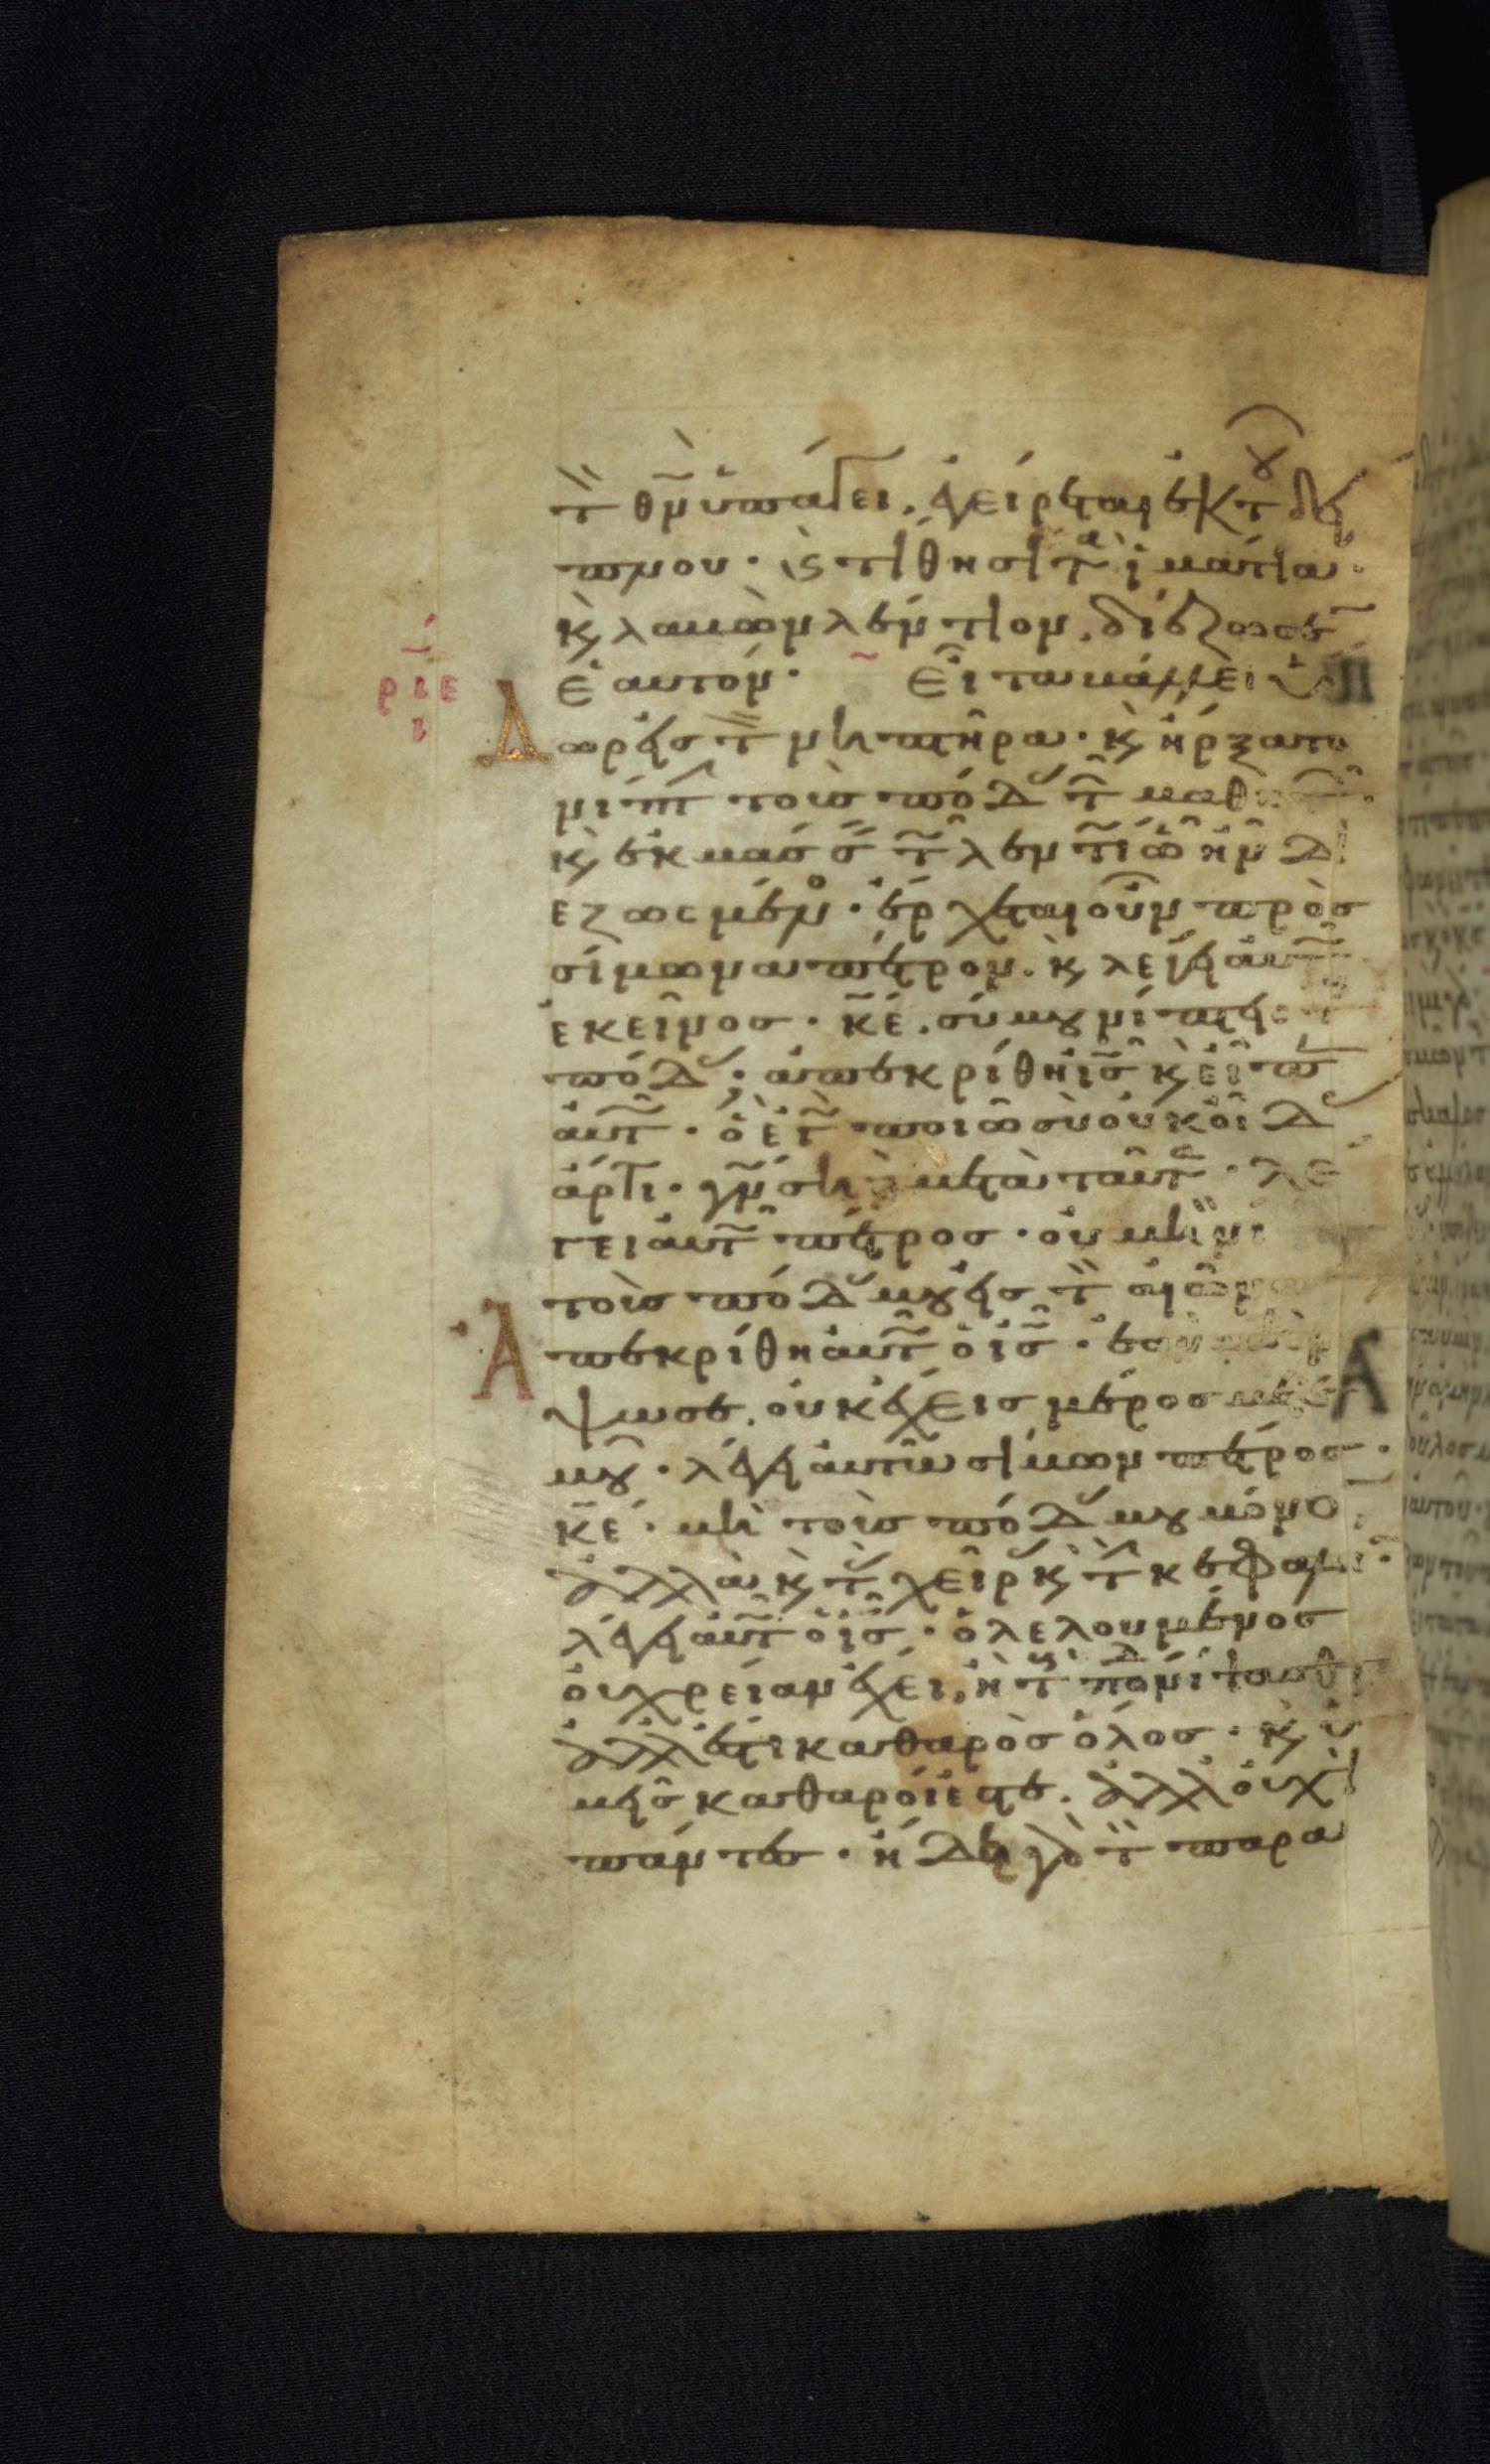 τὸν θν ὑπάγει. ἐγείρεται ἐκ τοῦ δεί
πνου. καὶ τίθησι τὰ ἱμάτια
καὶ λαβὼν λέντιον. διέζωσεν
ἑαυτόν. Εἶτα βάλλει ὕ
ριε
ι
Δωρ εἰς τὸν νιπτῆρα. καὶ ἤρξατο
νίπτειν τοὺς πόδας τῶν μαθητῶν.
καὶ ἐκμάσσειν τῷ λεντίῳ ᾧ ἦν δι
εζωσμένος. ἔρχεται οὖν πρὸς
σίμωνα πέτρον. καὶ λέγει αὐτῷ
ἐκεῖνος. κε. σύ μου νίπτεις
πόδας; ἀπεκρίθη ις καὶ εἶπεν
αὐτῷ. ὃ ἐγὼ ποιῶ σὺ οὐκ οἶδας
ἄρτι. γνώσῃ δὲ μετὰ ταῦτα. λέ
γει αὐτῷ πέτρος. οὐ μὴ νί
τοὺς πόδας μου εἰς τὸν αἰῶνα
Ἀπεκρίθη αὐτῷ ὁ ις. ἐὰν μὴ νί
ψω σε. οὐκ ἔχεις μέρος μετ
μοῦ. λέγει αὐτῷ σίμων πέτρος.
κε. μὴ τοὺς πόδας μου μόνον
ἀλλὰ καὶ τὰς χεῖρας καὶ τὴν κεφαλήν.
λέγει αὐτῷ ὁ ις. ὁ λελουμένος
οὐ χρείαν ἔχει, ἢ τοὺς πόδας νίψασθαι
ἀλλ' ἔστι καθαρὸς ὅλος. καὶ ὑ
μεῖς καθαροί ἐστε. ἀλλ' οὐχὶ
πάντες. ἤδει γὰρ τὸν παρα